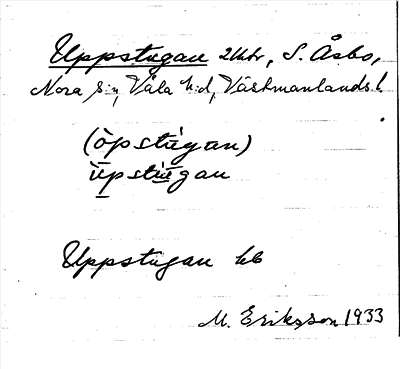 Uppstugan 2 Mtr, S. Åsbo,
Nora s:n, Våla h:d, Västmanlands l.
(òpstùgan)
ùpstùgan
Uppstugan kb
M. Eriksson 1933